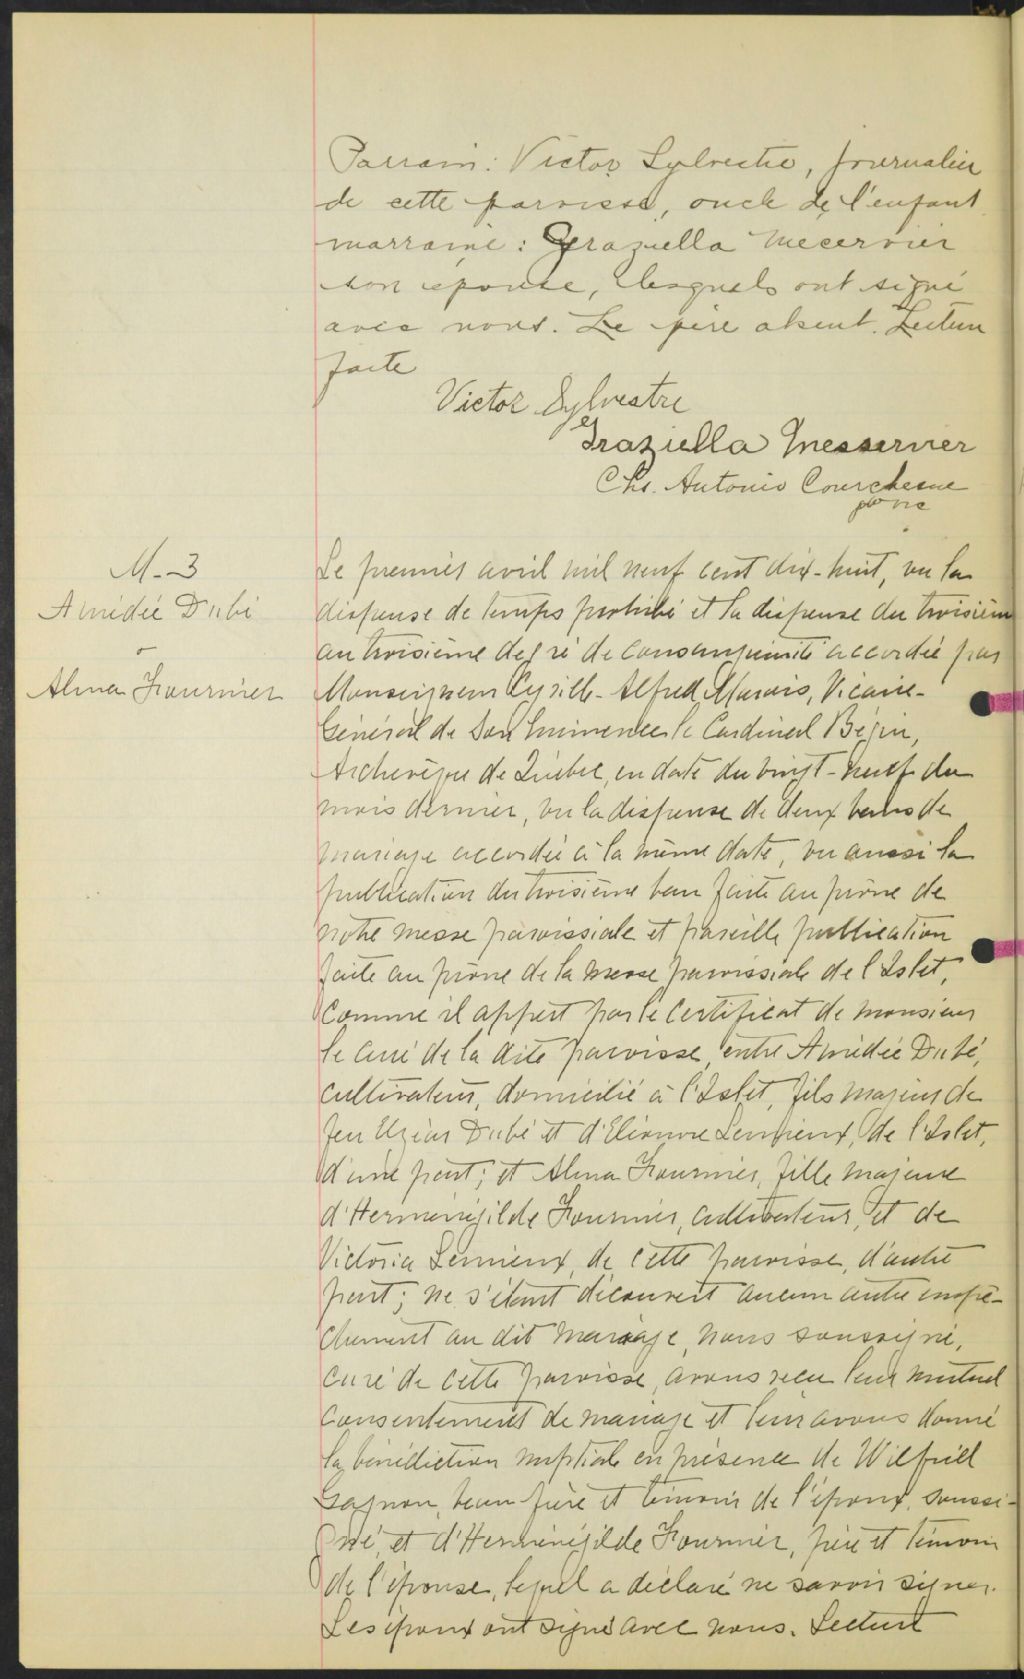 Parrain: Victor Sylvestre, journalier
de cette paroisse, oncle de l'enfant
marraine: Graziella Mecervier
son épouse, lesquels ont signé
avec nous. Le père absent. Lecture
faite
Victor Sylvestre
Graziella Messervier
Chs. Antonio Courchesne
ptre vic
M-3
Amédée Dubé
Alma Fournier
Le premier avril mil neuf cent dix-huit, vu la
dispense de temps prohibé et la dispense du troisième
au troisième degré de consanguinité accordée par
Monseigneur Cyrille-Alfred Marois, Vicaire-
Général de Son Eminence le Cardinal Bégin,
Archevêque de Québec, en date du vingt-neuf du
mois dernier, vu la dispense de deux bans de
mariage accordée à la même date, vu aussi la
publication du troisième ban faite au prône de
notre messe paroissiale et pareille publication
faite au prône de la messe paroissiale de l'Islet,
comme il appert par le certificat de monsieur
le curé de la dite paroisse, entre Amédée Dubé,
cultivateur, domicilié à l'Islet, fils majeur de
feu Elzéar Dubé et d'Eléonore Lemieux, de l'Islet,
d'une part; et Alma Fournier, fille majeure
d'Herménégilde Fournier, cultivateur, et de
Victoria Lemieux, de cette paroisse, d'autre
part; ne s'étant découvert aucun autre empê-
chement au dit mariage, nous soussigné,
curé de cette paroisse, avons reçu leur mutuel
consentement de mariage et leur avons donné
la bénédiction nuptiale en présence de Wilfrid
Gagnon, beau-frère et témoin de l'époux, soussi-
gné, et d'Herménégilde Fournier, père et témoin
de l'épouse, lequel a déclaré ne savoir signer.
Les époux ont signé avec nous. Lecture